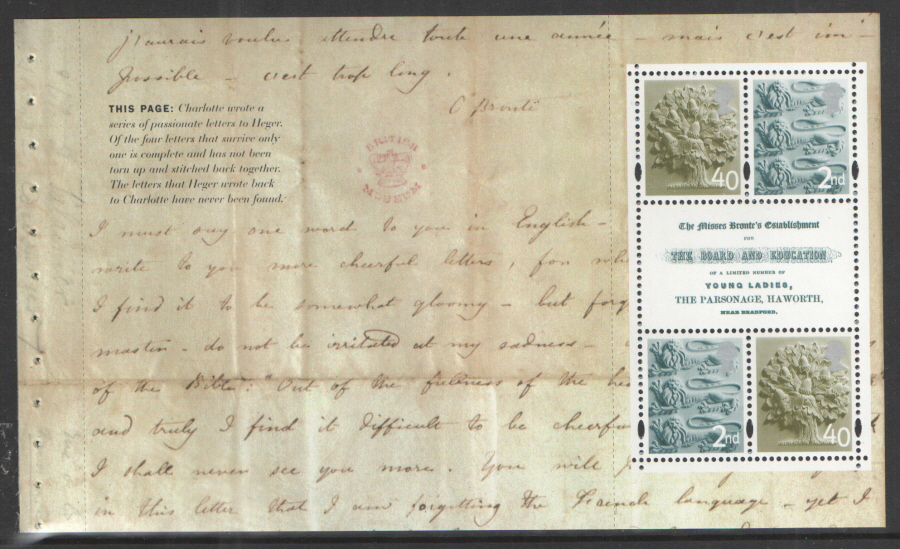 j'aurais voulu attendre toute une année — mais c'est im-
possible — c'est trop long.
C Brontë
THIS PAGE: Charlotte wrote a
series of passionate letters to Heger.
Of the four letters that survive only
one is complete and has not been
torn up and stitched back together.
The letters that Heger wrote back
to Charlotte have never been found.
BRITISH
MUSEUM
I must say one word to you in English —
write to you more cheerful letters, for
I find it to be somewhat gloomy — but
master — do not be irritated at my sadness —
of the Bible: "Out of the fulness of the
and truly I find it difficult to be
I shall never see you more. You will
in this letter that I am forgetting the French language — yet I
40
2nd
The Misses Bronte's Establishment
FOR
THE BOARD AND EDUCATION
OF A LIMITED NUMBER OF
YOUNG LADIES,
THE PARSONAGE, HAWORTH,
NEAR BRADFORD.
2nd
40